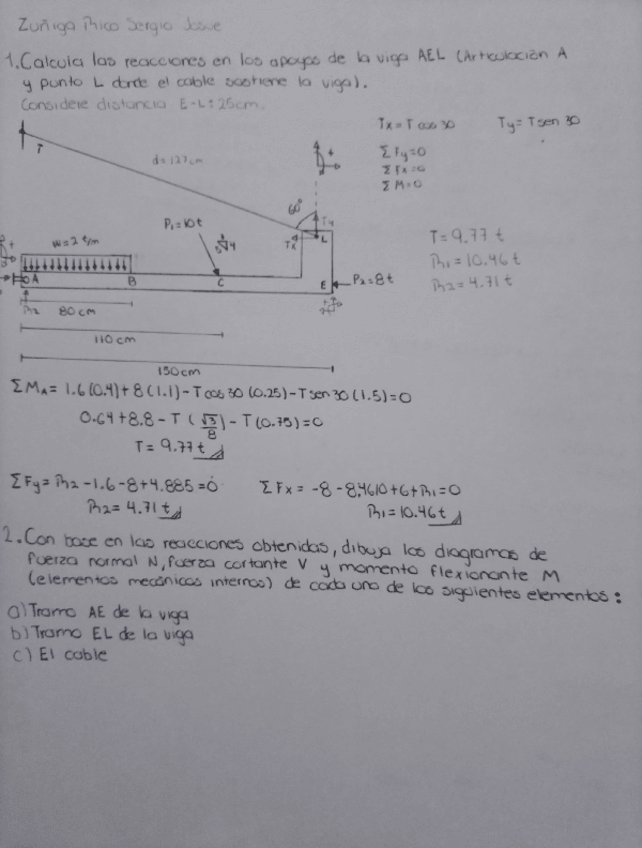 Zuñiga Rico Sergio Josue
1. Calcula las reacciones en los apoyos de la viga AEL (Articulación A
y punto L donde el cable sostiene la viga).
Considere distancia E-L: 25cm.
Tx = T cos 30 Ty = T sen 30
ΣFy=0
ΣFx=0
ΣM=0
T
d=127cm
60°
Ty
Tx
L
P1=10t
3 4
W=2 t/m
T=9.77 t
R1=10.46 t
R2=4.71 t
A B C E
P2=8t
R2
80 cm
110 cm
150 cm
ΣMA = 1.6(0.4)+8(1.1)-Tcos30(0.25)-Tsen30(1.5)=0
0.64+8.8-T(√3/8)-T(0.75)=0
T= 9.77 t
ΣFy= R2-1.6-8+4.885=0 ΣFx= -8-8.4610+6+R1=0
R2= 4.71 t R1=10.46 t
2. Con base en las reacciones obtenidas, dibuja los diagramas de
fuerza normal N, fuerza cortante V y momento flexionante M
(elementos mecánicos internos) de cada uno de los siguientes elementos:
a) Tramo AE de la viga
b) Tramo EL de la viga
c) El cable